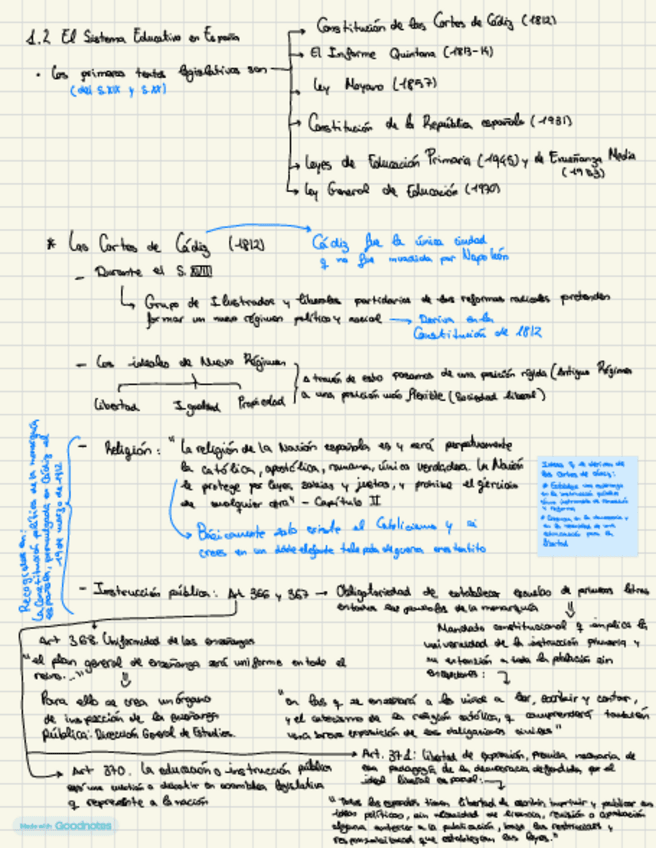 1.2 El Sistema Educativo en España
• Los primeros textos legislativos son
(del S.XIX y S.XX)
→ Constitución de las Cortes de Cádiz (1812)
→ El Informe Quintana (1813-14)
→ Ley Moyano (1857)
→ Constitución de la República española (1931)
→ Leyes de Educación Primaria (1945) y de Enseñanza Media
(1953)
→ Ley General de Educación (1970)
* Las Cortes de Cádiz (1812)
Cádiz fue la única ciudad
q no fue invadida por Napoleón
- Durante el S. XVIII
Grupo de Ilustrados y liberales partidarios de las reformas radicales pretenden
formar un nuevo régimen político y social → Deriva en la
Constitución de 1812
- Los ideales de Nuevo Régimen
Libertad Igualdad Propiedad
a través de esto pasamos de una posición rígida (Antiguo Régimen
a una posición más flexible (Sociedad liberal)
Recogidas en:
La Constitución política de la monarquía
española, promulgada en Cádiz el
19 de marzo de 1912
- Religión: "La religión de la Nación española es y será perpetuamente
la católica, apostólica, romana, única verdadera. La Nación
la protege por leyes sabias y justas, y prohíbe el ejercicio
de cualquier otra" - Capítulo II
Básicamente solo existe el Catolicismo y si
crees en un
Ideas q se derivan de
las Cortes de Cádiz:
- Instrucción pública: Art 366 y 367 → Obligatoriedad de establecer escuelas de primeras letras
en todos los pueblos de la monarquía
Mandato constitucional q implica la
universalidad de la instrucción primaria y
su extensión a toda la población sin
excepciones:
Art 368. Uniformidad de las enseñanzas
"el plan general de enseñanza será uniforme en todo el
reino..."
Para ello se crea un órgano
de inspección de la enseñanza
pública: Dirección General de Estudios.
"en las q se enseñará a los niños a leer, escribir y contar,
y el catecismo de la religión católica, q comprenderá también
una breve exposición de las obligaciones civiles"
→ Art 370. La educación o instrucción pública
es una cuestión a debatir en asamblea legislativa
q represente a la nación
→ Art. 371: libertad de expresión, premisa necesaria de
una pedagogía de la democracia defendida por el
ideal liberal español:
"Todos los españoles tienen libertad de escribir, imprimir y publicar sus
ideas políticas, sin necesidad de licencia, revisión o aprobación
alguna anterior a la publicación, bajo las restricciones y
responsabilidad que establezcan las leyes."
Made with Goodnotes